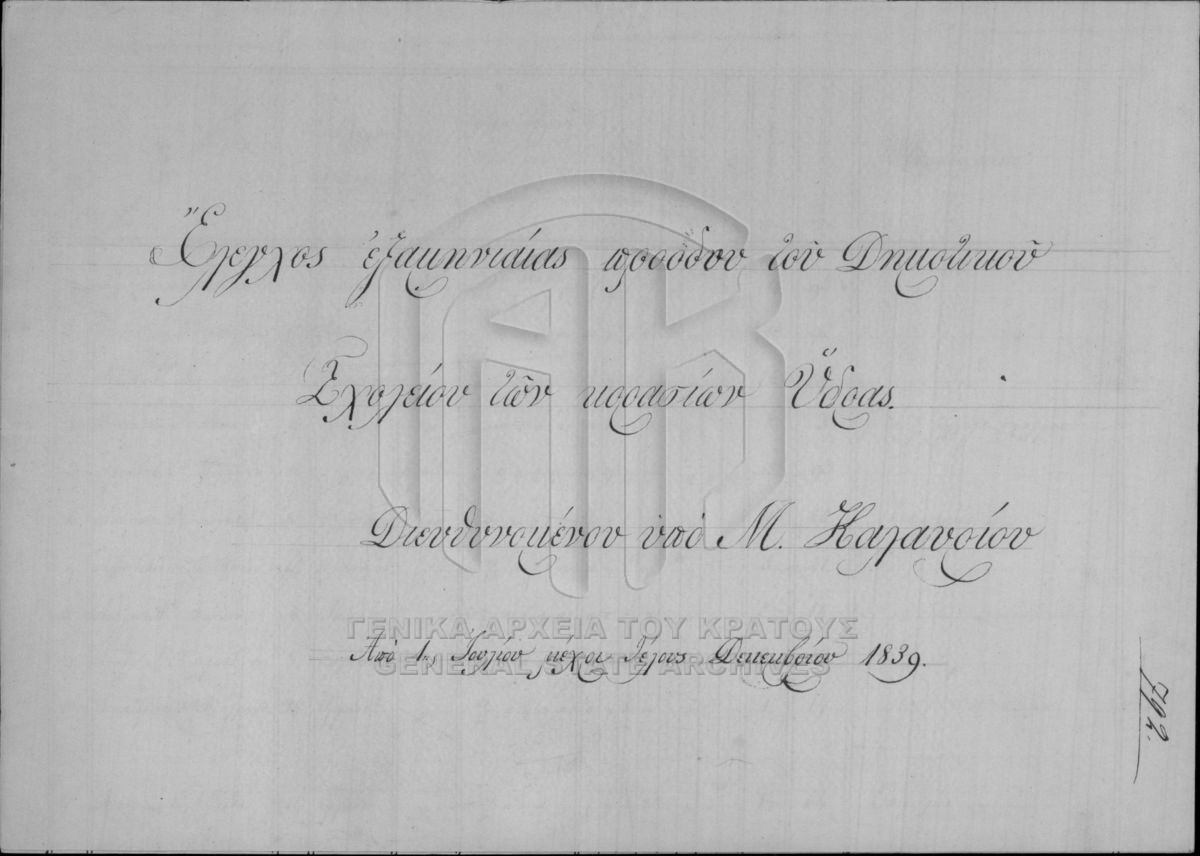 Ἔλεγχος ἑξαμηνιαίας προόδου τοῦ Δημοτικοῦ
Σχολείου τῶν κορασίων Ὕδρας.
Διευθυνομένου ὑπὸ Μ. Καλαυρίου
ΓΕΝΙΚΑ ΑΡΧΕΙΑ ΤΟΥ ΚΡΑΤΟΥΣ
Ἀπὸ 1ης Ἰουλίου μέχρι τέλους Δεκεμβρίου 1839.
GENERAL STATE ARCHIVES